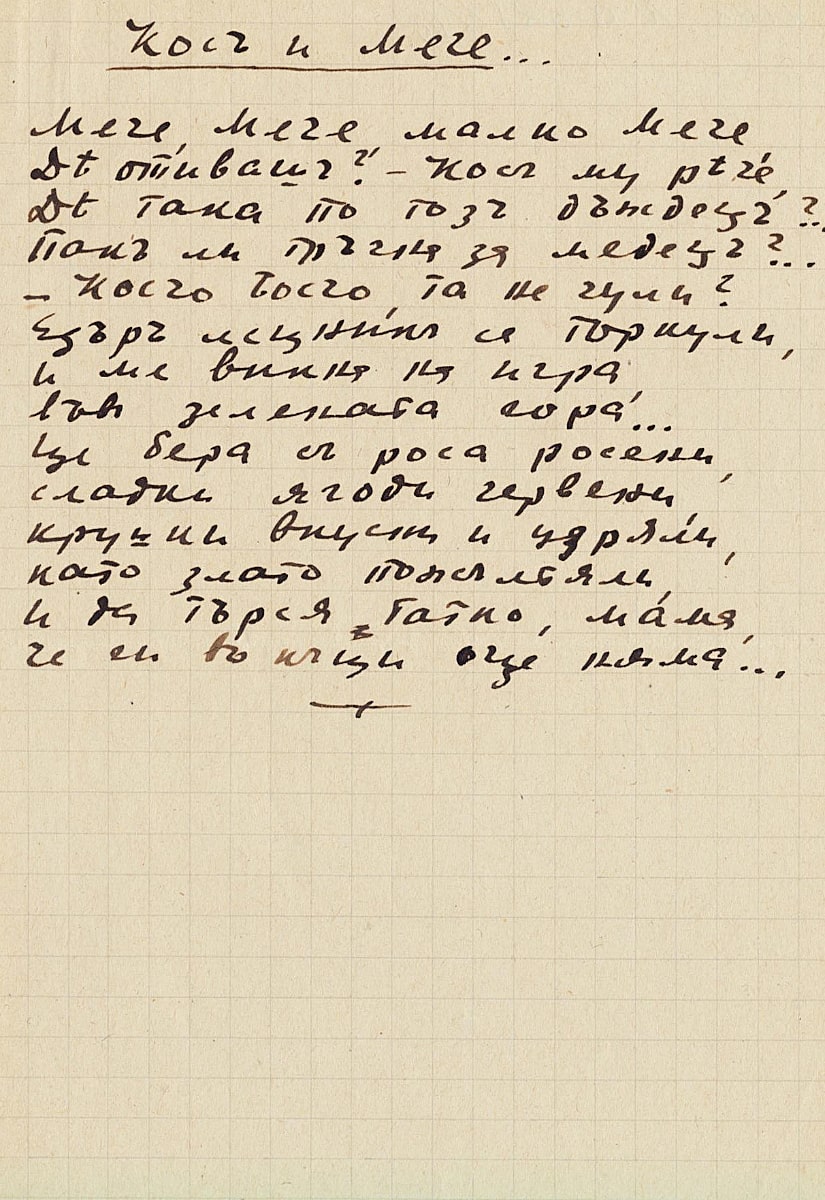 Косъ и Мече...
Мече, Мече, малко Мече,
Дѣ отивашъ? – Косъ му рѣче,
Дѣ така по тозъ дъждецъ?..
Пакъ ли тръгна за медецъ?...
– Косчо Босчо, та не чули?
Едъръ лешникъ се търкули,
и ме викна на игра,
във зелената гора...
Ще бера съ роса росени,
сладки ягоди червени,
крушки вкусни и узряли,
като злато пожълтяли,
и да търся татко, мама,
че ги въ къщи още няма...